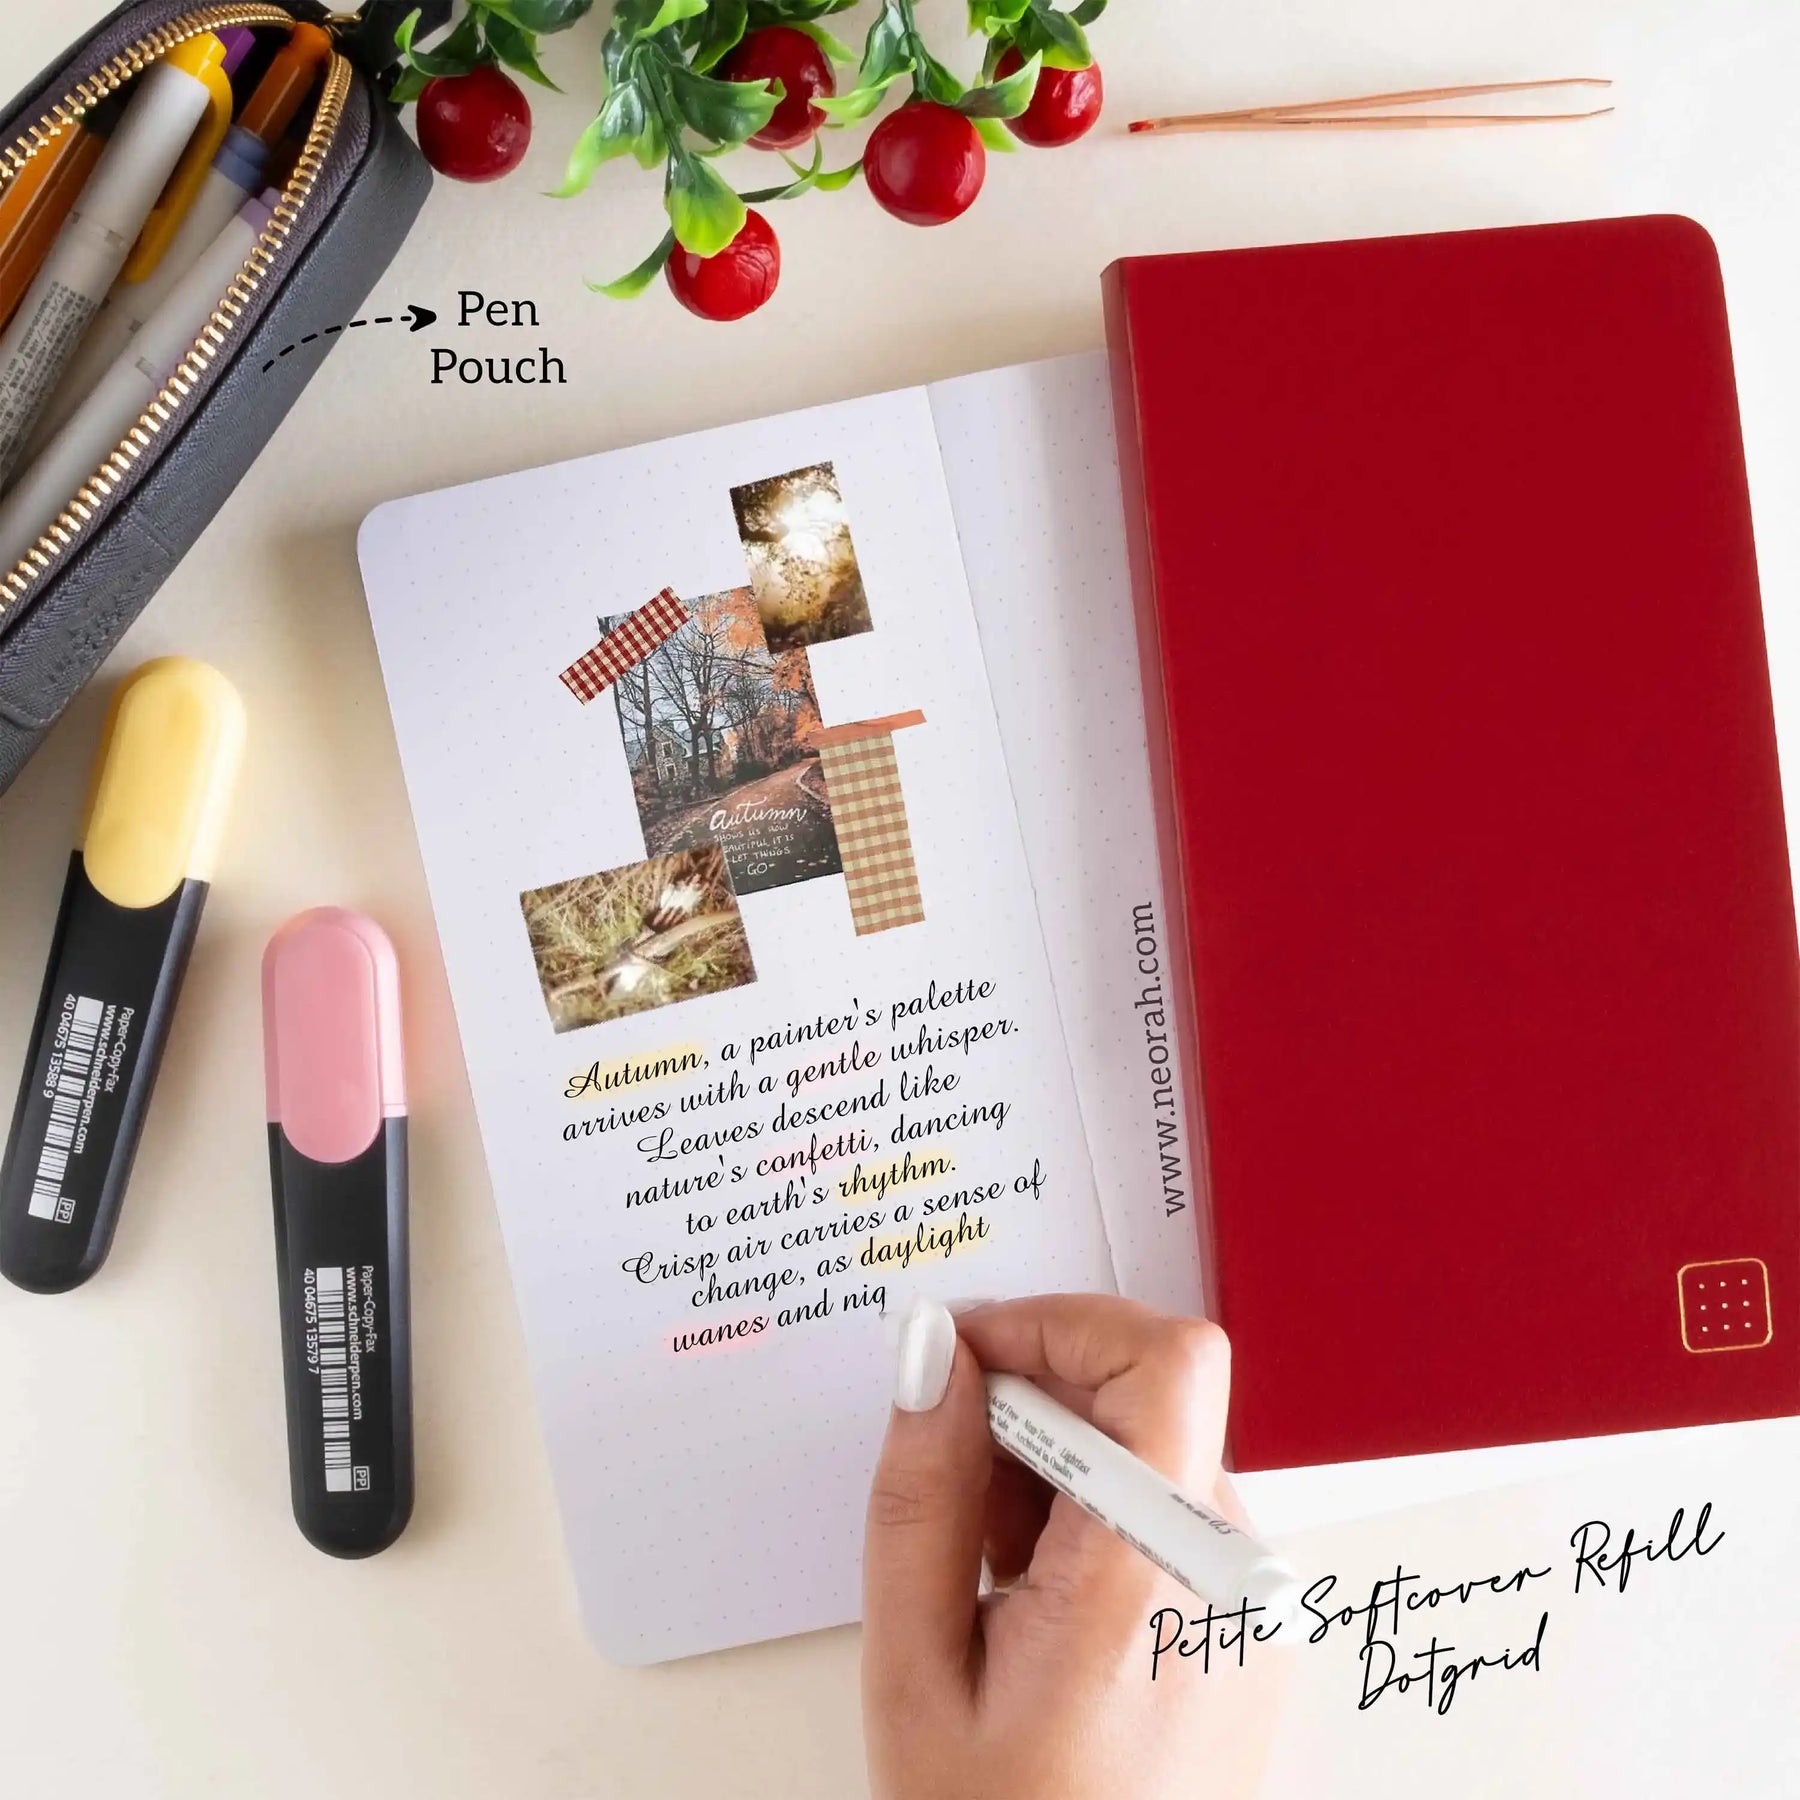 Pen
Pouch
autumn
SHOWS US HOW
BEAUTIFUL IT IS
LET THINGS
-GO-
Autumn, a painter's palette
arrives with a gentle whisper.
Leaves descend like
nature's confetti, dancing
to earth's rhythm.
Crisp air carries a sense of
change, as daylight
wanes and nig
www.neorah.com
Paper-Copy-Fax
www.schneiderpen.com
40 04675 13588 9
PP
Paper-Copy-Fax
www.schneiderpen.com
40 04675 13579 7
PP
Acid Free · Non Toxic · Lightfast
Archival in Quality
0.5
Petite Softcover Refill
Dotgrid